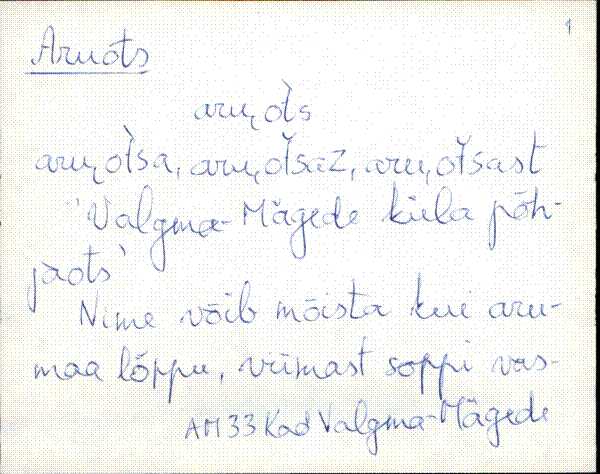 1
Aruots
aru,ot̀s
aru,ot̀sa, aru,oťsaz, aru,oťsast
"Valgma-Mägede küla põh-
jaots'
Nime võib mõista kui aru-
maa lõppu, viimast soppi vas-
AM 33 Kad Valgma-Mägede